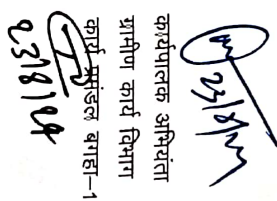 23/8/24
कार्यपालक अभियंता
ग्रामीण कार्य विभाग
कार्य प्रमंडल बगहा-1
23/8/24